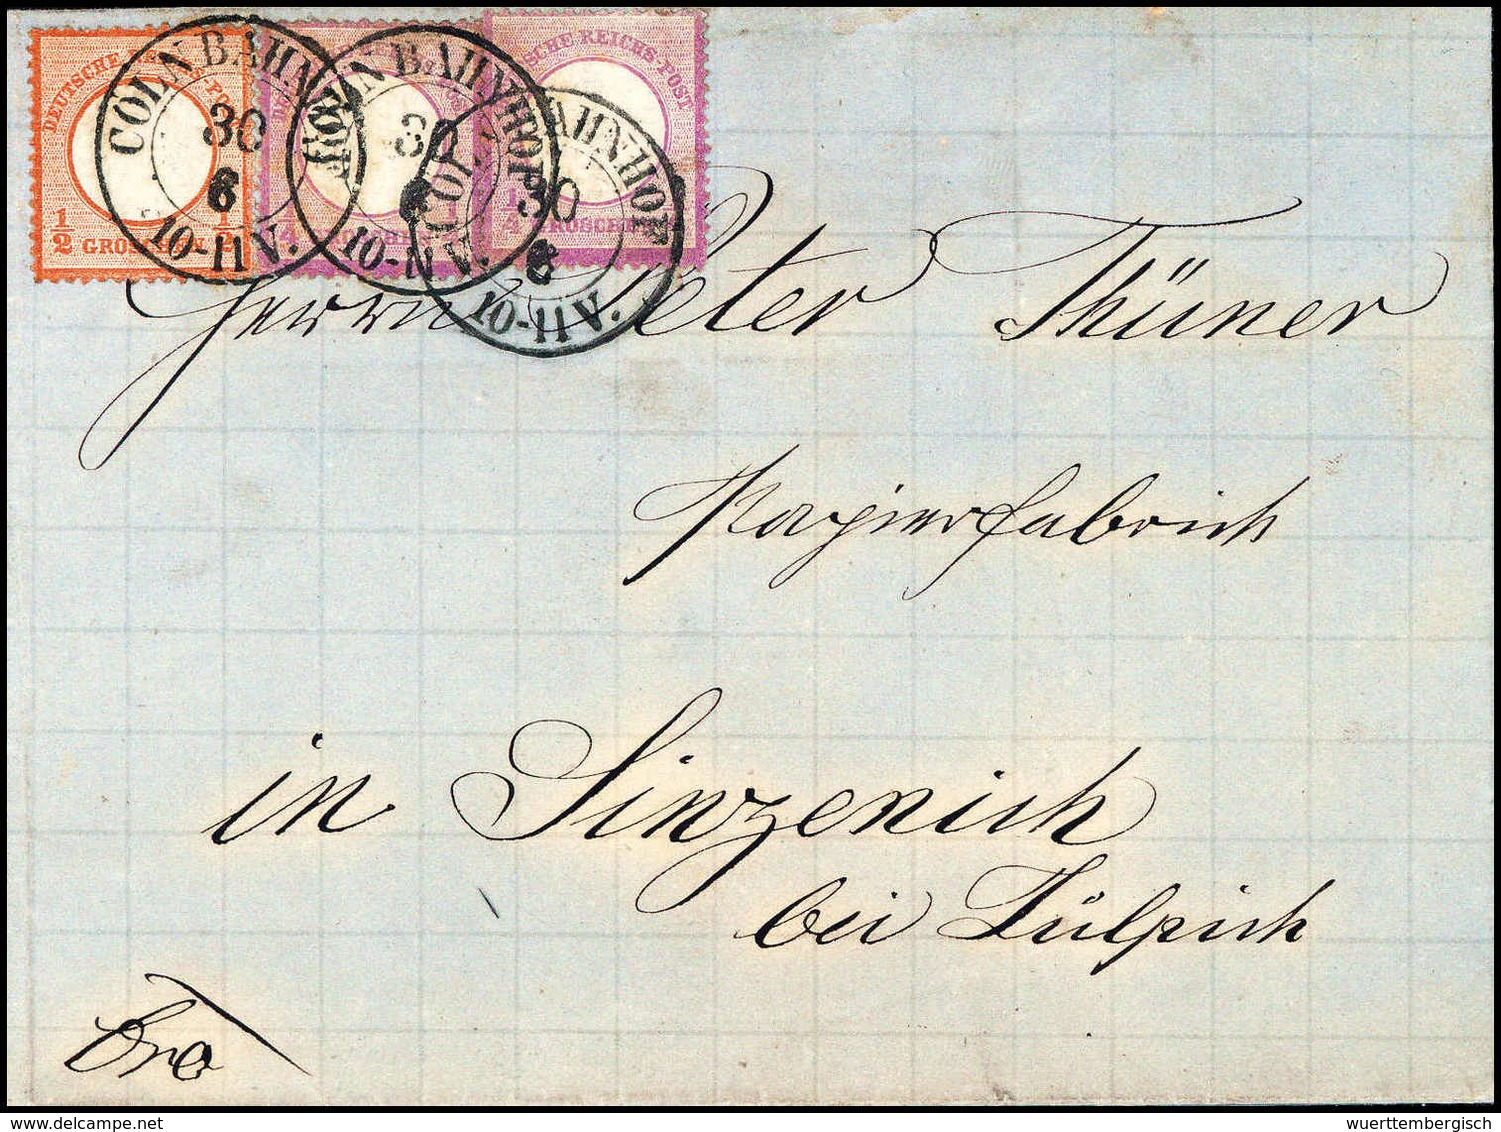 DEUTSCHE REICHS-POST
1/2 GROSCHEN 1/2
1/4 GROSCHEN
DEUTSCHE REICHS-POST
1/4 GROSCHEN
CÖLN BAHNHOF
30
6
10-11 V.
CÖLN BAHNHOF
30
6
10-11 V.
CÖLN BAHNHOF
30
6
10-11 V.
Herrn Peter Thüner
Papierfabrich
in Sinzenich
bei Zülpich
fro
delcampe.net
wuerttembergisch